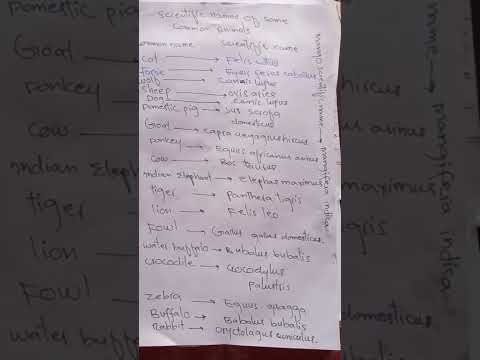 Scientific names of some
common Animals
common name scientific name
cat → Felis catus
Horse → Equus ferus caballus
wolf → Canis lupus
sheep → ovis aries
Dog → canis lupus
Domestic pig → sus scrofa
domesticus
Goat → capra aegagrus hircus
Donkey → Equus africanus asinus
cow → Bos taurus
Indian Elephant → elephas maximus
tiger → Panthera tigris
lion → Felis leo
Fowl → Gallus gallus domesticus.
water buffalo → Bubalus bubalis
crocodile → crocodylus
palustris
Zebra → Equus quagga
Buffalo → Bubalus bubalis
Rabbit → oryctolagus cuniculus.
→ mangifera indica